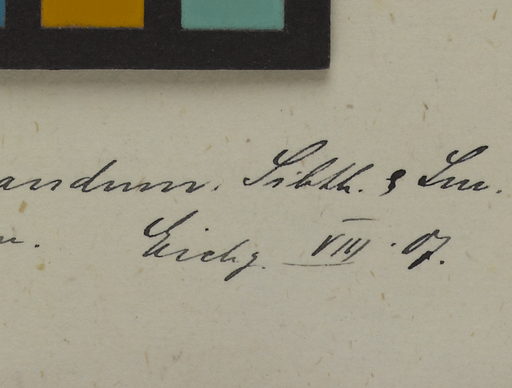 andrum. Sibth. & Sm.
Eichg. VIII. 07.